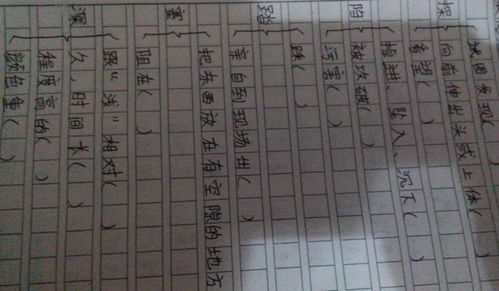 探
试图发现( )
向前伸出头或上体( )
看望( )
陷
掉进、坠入、沉下( )
被攻破( )
污害( )
踏
踩( )
亲自到现场 ( )
塞
把东西放在有空隙的地方
阻在( )
深
跟“浅”相对( )
久,时间长( )
程度高的( )
颜色重( )